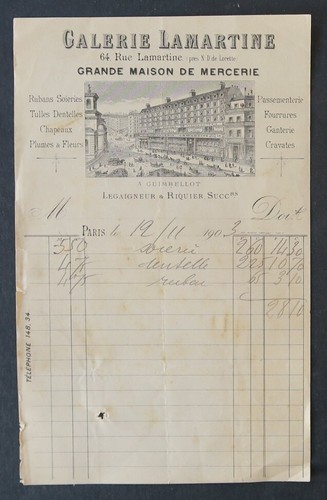 GALERIE LAMARTINE
64, Rue Lamartine, près N.D. de Lorette
GRANDE MAISON DE MERCERIE
Rubans Soieries
Tulles Dentelles
Chapeaux
Plumes & Fleurs
Passementerie
Fourrures
Ganterie
Cravates
A. GUIMBELLOT
LEGAIGNEUR & RIQUIER SUCCRS
M Doit
PARIS le 12/11 1903
5 50 soierie 2 60 14 30
4 75 dentelle
4 75 ruban 65
28 10
TÉLÉPHONE 148.34